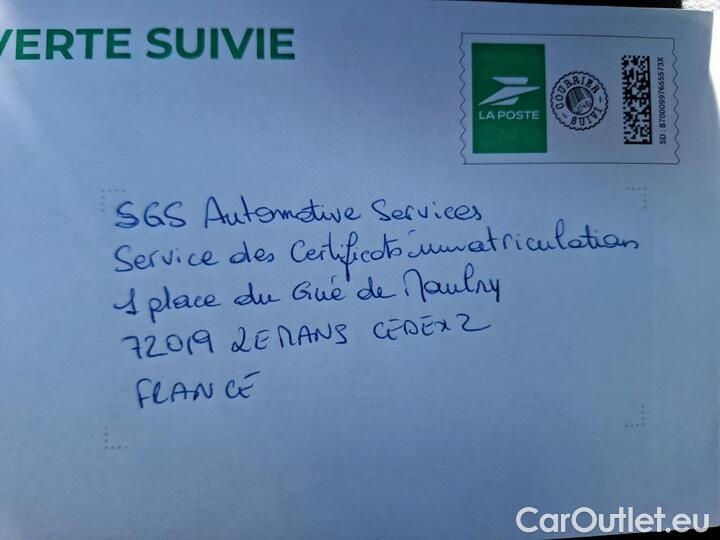 VERTE SUIVIE
LA POSTE
COURRIER SUIVI
SD : 87000997655573X
SGS Automotive Services
Service des Certificats immatriculation
1 place du Gué de Maulny
72019 LE MANS CEDEX 2
FRANCE
CarOutlet.eu